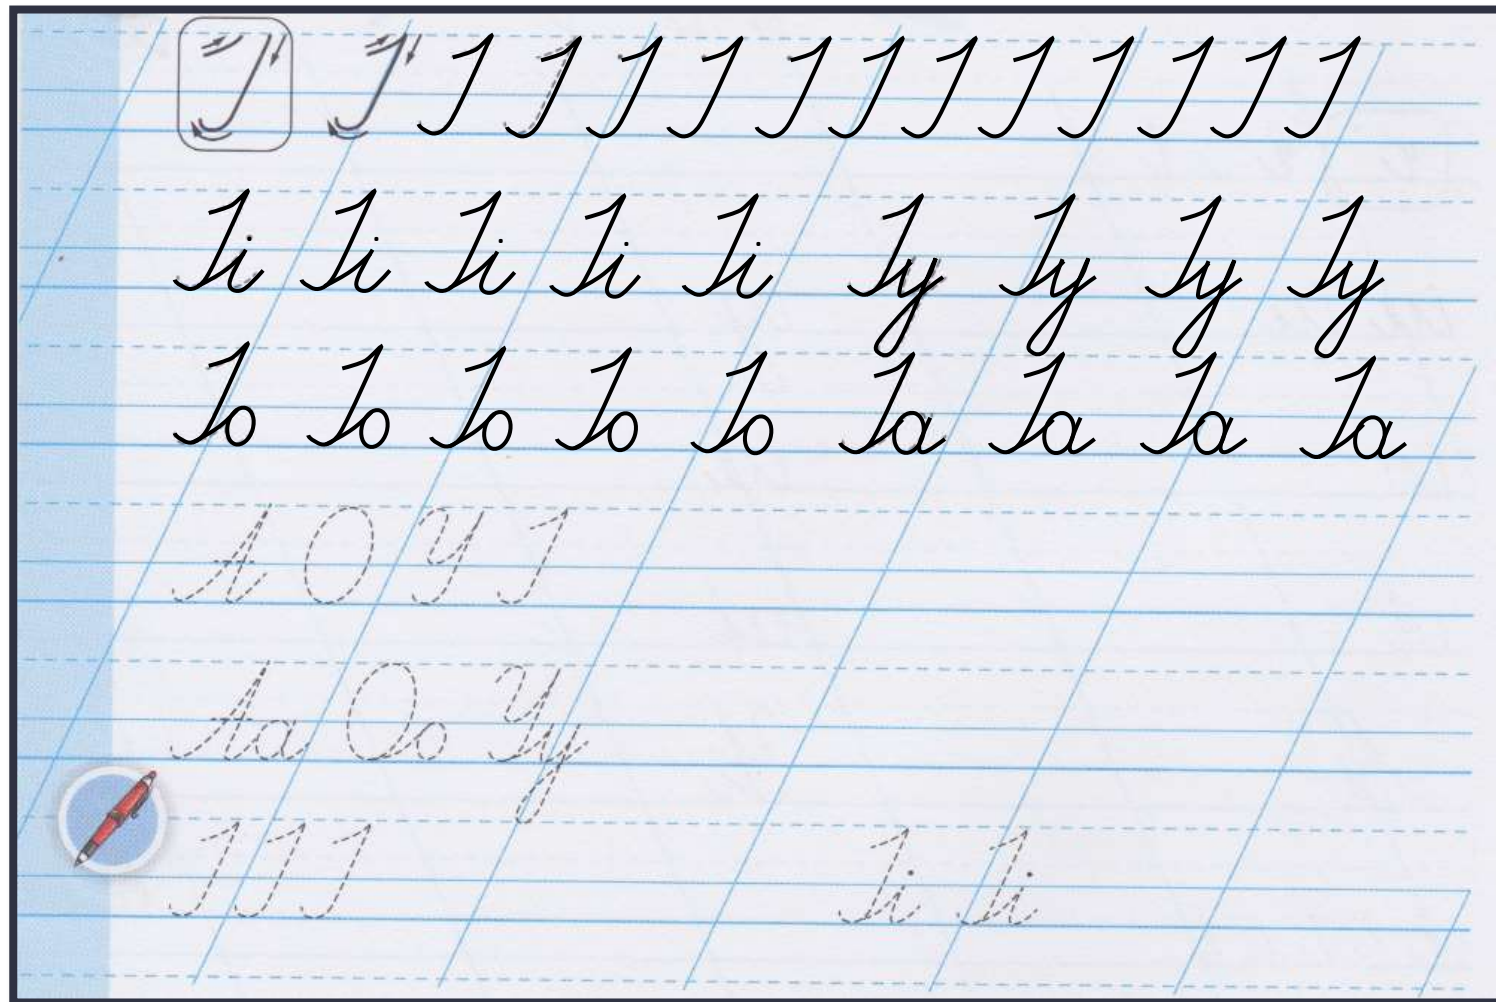 І І І І І І І І І І І І І І
Іі Іі Іі Іі Іі Іу Іу Іу Іу
Іо Іо Іо Іо Іо Іа Іа Іа Іа
А О У І
Аа Оо Уу
І І І Іі Іі